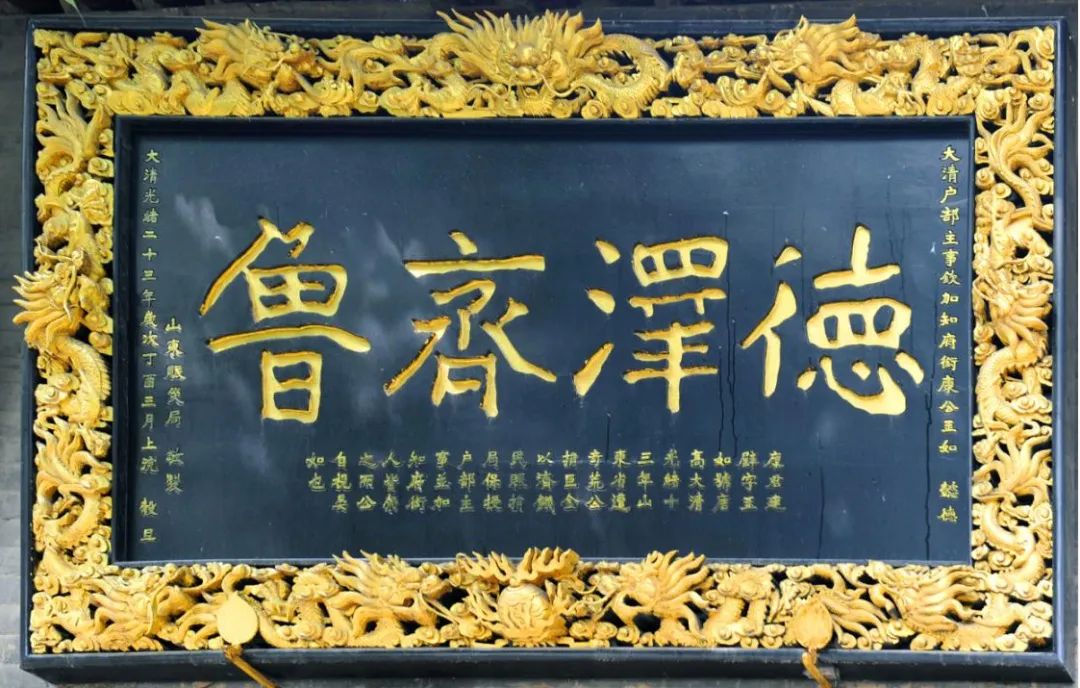 大清户部主事欽加知府銜康公玉如 懿德
德澤齊魯
康君建
壁字玉
如號唐
高大清
光緒十
三年山
東省遭
奇荒公
捐巨金
以濟饑
民賑捐
局保授
户部主
事並加
知府銜
人皆榮
之而公
自視
如也
山東賑災局 敬製
大清光緒二十三年歲次丁酉三月上浣 穀旦